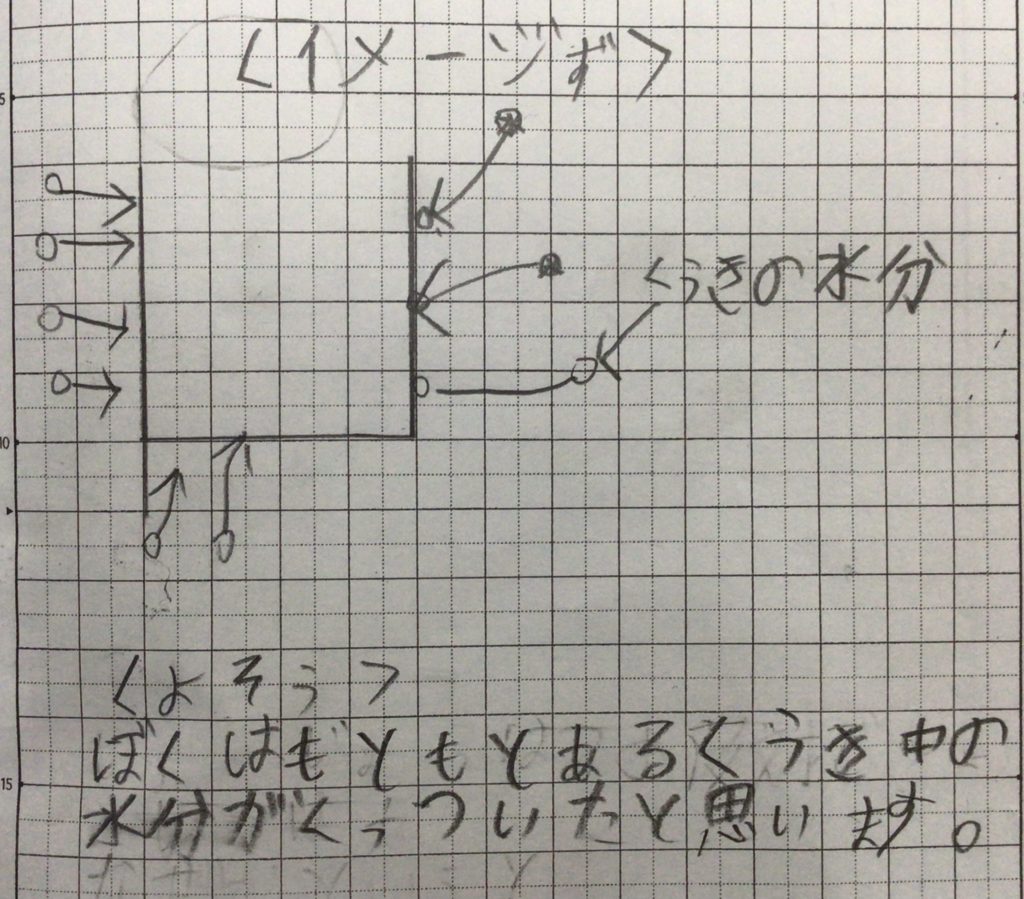 <イメージず>
くうきの水分
<よそう>
ぼくはもともとあるくうき中の
水分がくっついたと思います。
5
10
15